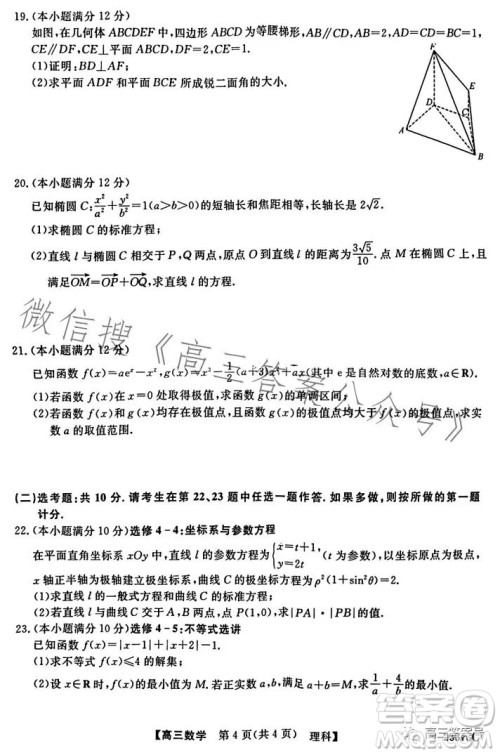 19.(本小题满分 12 分)
如图,在几何体 ABCDEF 中,四边形 ABCD 为等腰梯形,
CE∥DF,CE⊥平面
(1)证明:BD⊥AF;
(2)求平面 ADF 和平面 BCE 所成锐二面角的大小.
F
E
D
C
A
B
20.(本小题满分 12 分)
已知椭圆 C:x²/a²+y²/b²=1(a>b>0)的短轴长和焦距相等,长轴长是 2√2.
(1)求椭圆 C 的标准方程;
(2)直线 l 与椭圆 C 相交于 P,Q 两点,原点 O 到直线 l 的距离为 3√5/10. 点 M 在椭圆 C 上,且
满足OM=OP+OQ,求直线 l 的方程.
21.(本小题满分 12 分)
已知函数 f(x)=aeˣ-x²,g(x)=x³-1/2(a+3)x²+ax(其中 e 是自然对数的底数,a∈R).
(1)若函数 f(x)在 x=0 处取得极值,求实数 a 的值;
(2)若函数 f(x)和 g(x)均存在极值点,且函数 的极值点均大于 f(x)的极值点,求实
数 a 的取值范围.
微信搜《高三答案公众号》
(二)选考题:共 10 分. 请考生在第 22、23 题中任选一题作答. 如果多做,则按所做的第一题
计分.
22.(本小题满分 10 分)选修 4-4:坐标系与参数方程
在平面直角坐标系 xOy 中,直线 l 的参数方程为{x=t+1, y=2t (t 为参数),以坐标原点为极点,
x 轴正半轴为极轴建立极坐标系,曲线 C 的极坐标方程为 ρ²(1+sin²θ)=2.
(1)求直线 l 的一般式方程和曲线 C 的标准方程;
(2)若直线 l 与曲线 C 交于 A,B 两点,点 P(1,0),求|PA|·|PB|的值.
23.(本小题满分 10 分)选修 4-5:不等式选讲
(1)求不等式 f(x)≤4 的解集;
【高三数学 第 4 页(共 4 页) 理科】